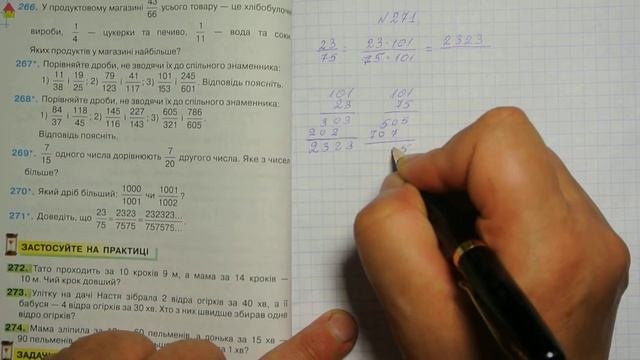 266. У продуктовому магазині 43/66 усього товару — це хлібобулочні
вироби, 1/4 — цукерки та печиво, 1/11 — вода та соки.
Яких продуктів у магазині найбільше?
267*. Порівняйте дроби, не зводячи їх до спільного знаменника:
1) 11/38 і 19/25; 2) 79/123 і 41/117; 3) 101/153 і 245/601. Відповідь поясніть.
268*. Порівняйте дроби, не зводячи їх до спільного знаменника:
1) 84/37 і 118/45; 2) 145/116 і 227/143; 3) 605/321 і 786/605.
Відповідь поясніть.
269*. 7/15 одного числа дорівнюють 7/20 другого числа. Яке з чисел
більше?
270*. Який дріб більший: 1000/1001 чи 1001/1002?
271*. Доведіть, що 23/75 = 2323/7575 = 232323.../757575...
ЗАСТОСУЙТЕ НА ПРАКТИЦІ
272. Тато проходить за 10 кроків 9 м, а мама за 14 кроків —
10 м. Чий крок довший?
273. Улітку на дачі Настя зібрала 2 відра огірків за 40 хв, а її
бабуся — 4 відра огірків за 30 хв. Хто з них швидше збирав одне
відро огірків?
274. Мама зліпила за
60 пельменів, а донька за 15 хв —
90 пельменів
за 1 хв?
ЗАДАЧІ
№271.
23/75 = 23·101/75·101 = 2323
101
23
303
202
2323
101
75
505
707
5